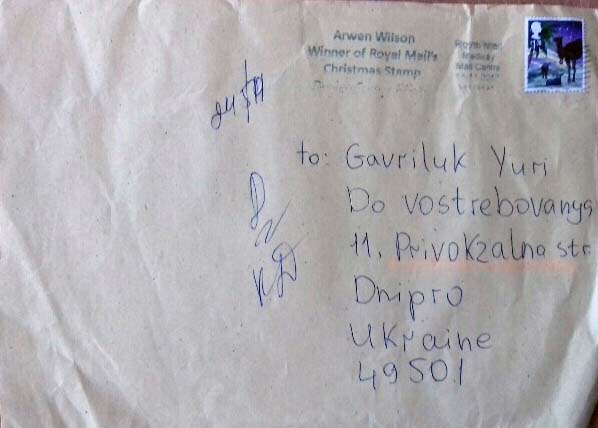 Arwen Wilson
Winner of Royal Mail's
Christmas Stamp
Royal Mail
Medway
Mail Centre
to: Gavriluk Yuri
Do vostrebovanya
11, Privokzalna str.
Dnipro
Ukraine
49501